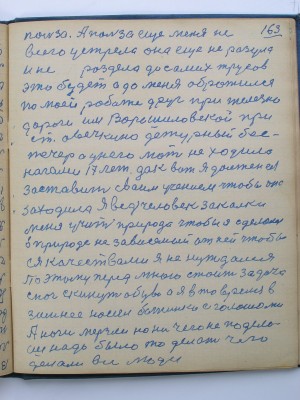 163
польза. А польза еще меня не
всего устрела она еще не разула
и не раздела до семих трусов
это будет а до меня обротился
по моей работе друг при железно
дороги им Ворошиловской при
ст. овечкино дежурный бас-
а у него мать не ходила
ногами 17 лет, дак вот я должен ея
заставить своим учением чтобы она
заходила Я вед человек закалки
меня учит природа чтобы я сделался
в природе не зависемай от ней чтобы
ея качествами я не нуждался
Поэтому перед мною стоит задача
скинут обувь а я в то время в
зимнее носил ботинки с голошами
А ноги мерзли но ни чего не подело
иш надь было то делат чего
делали все люди